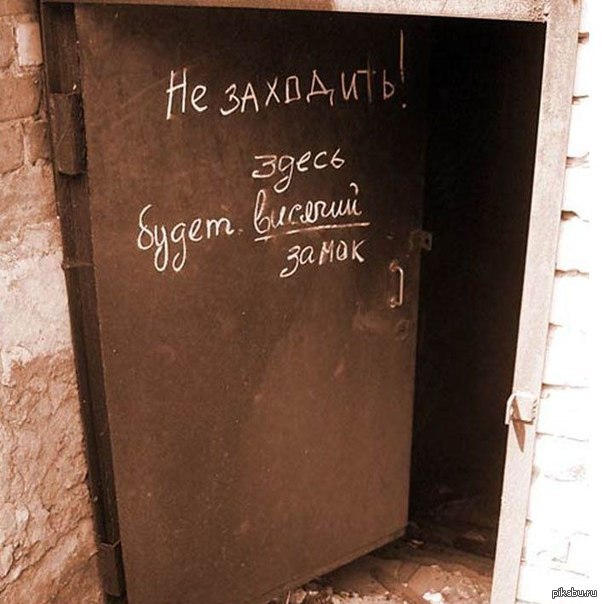 Не заходить!
здесь
будет висячий
замок
pikabu.ru